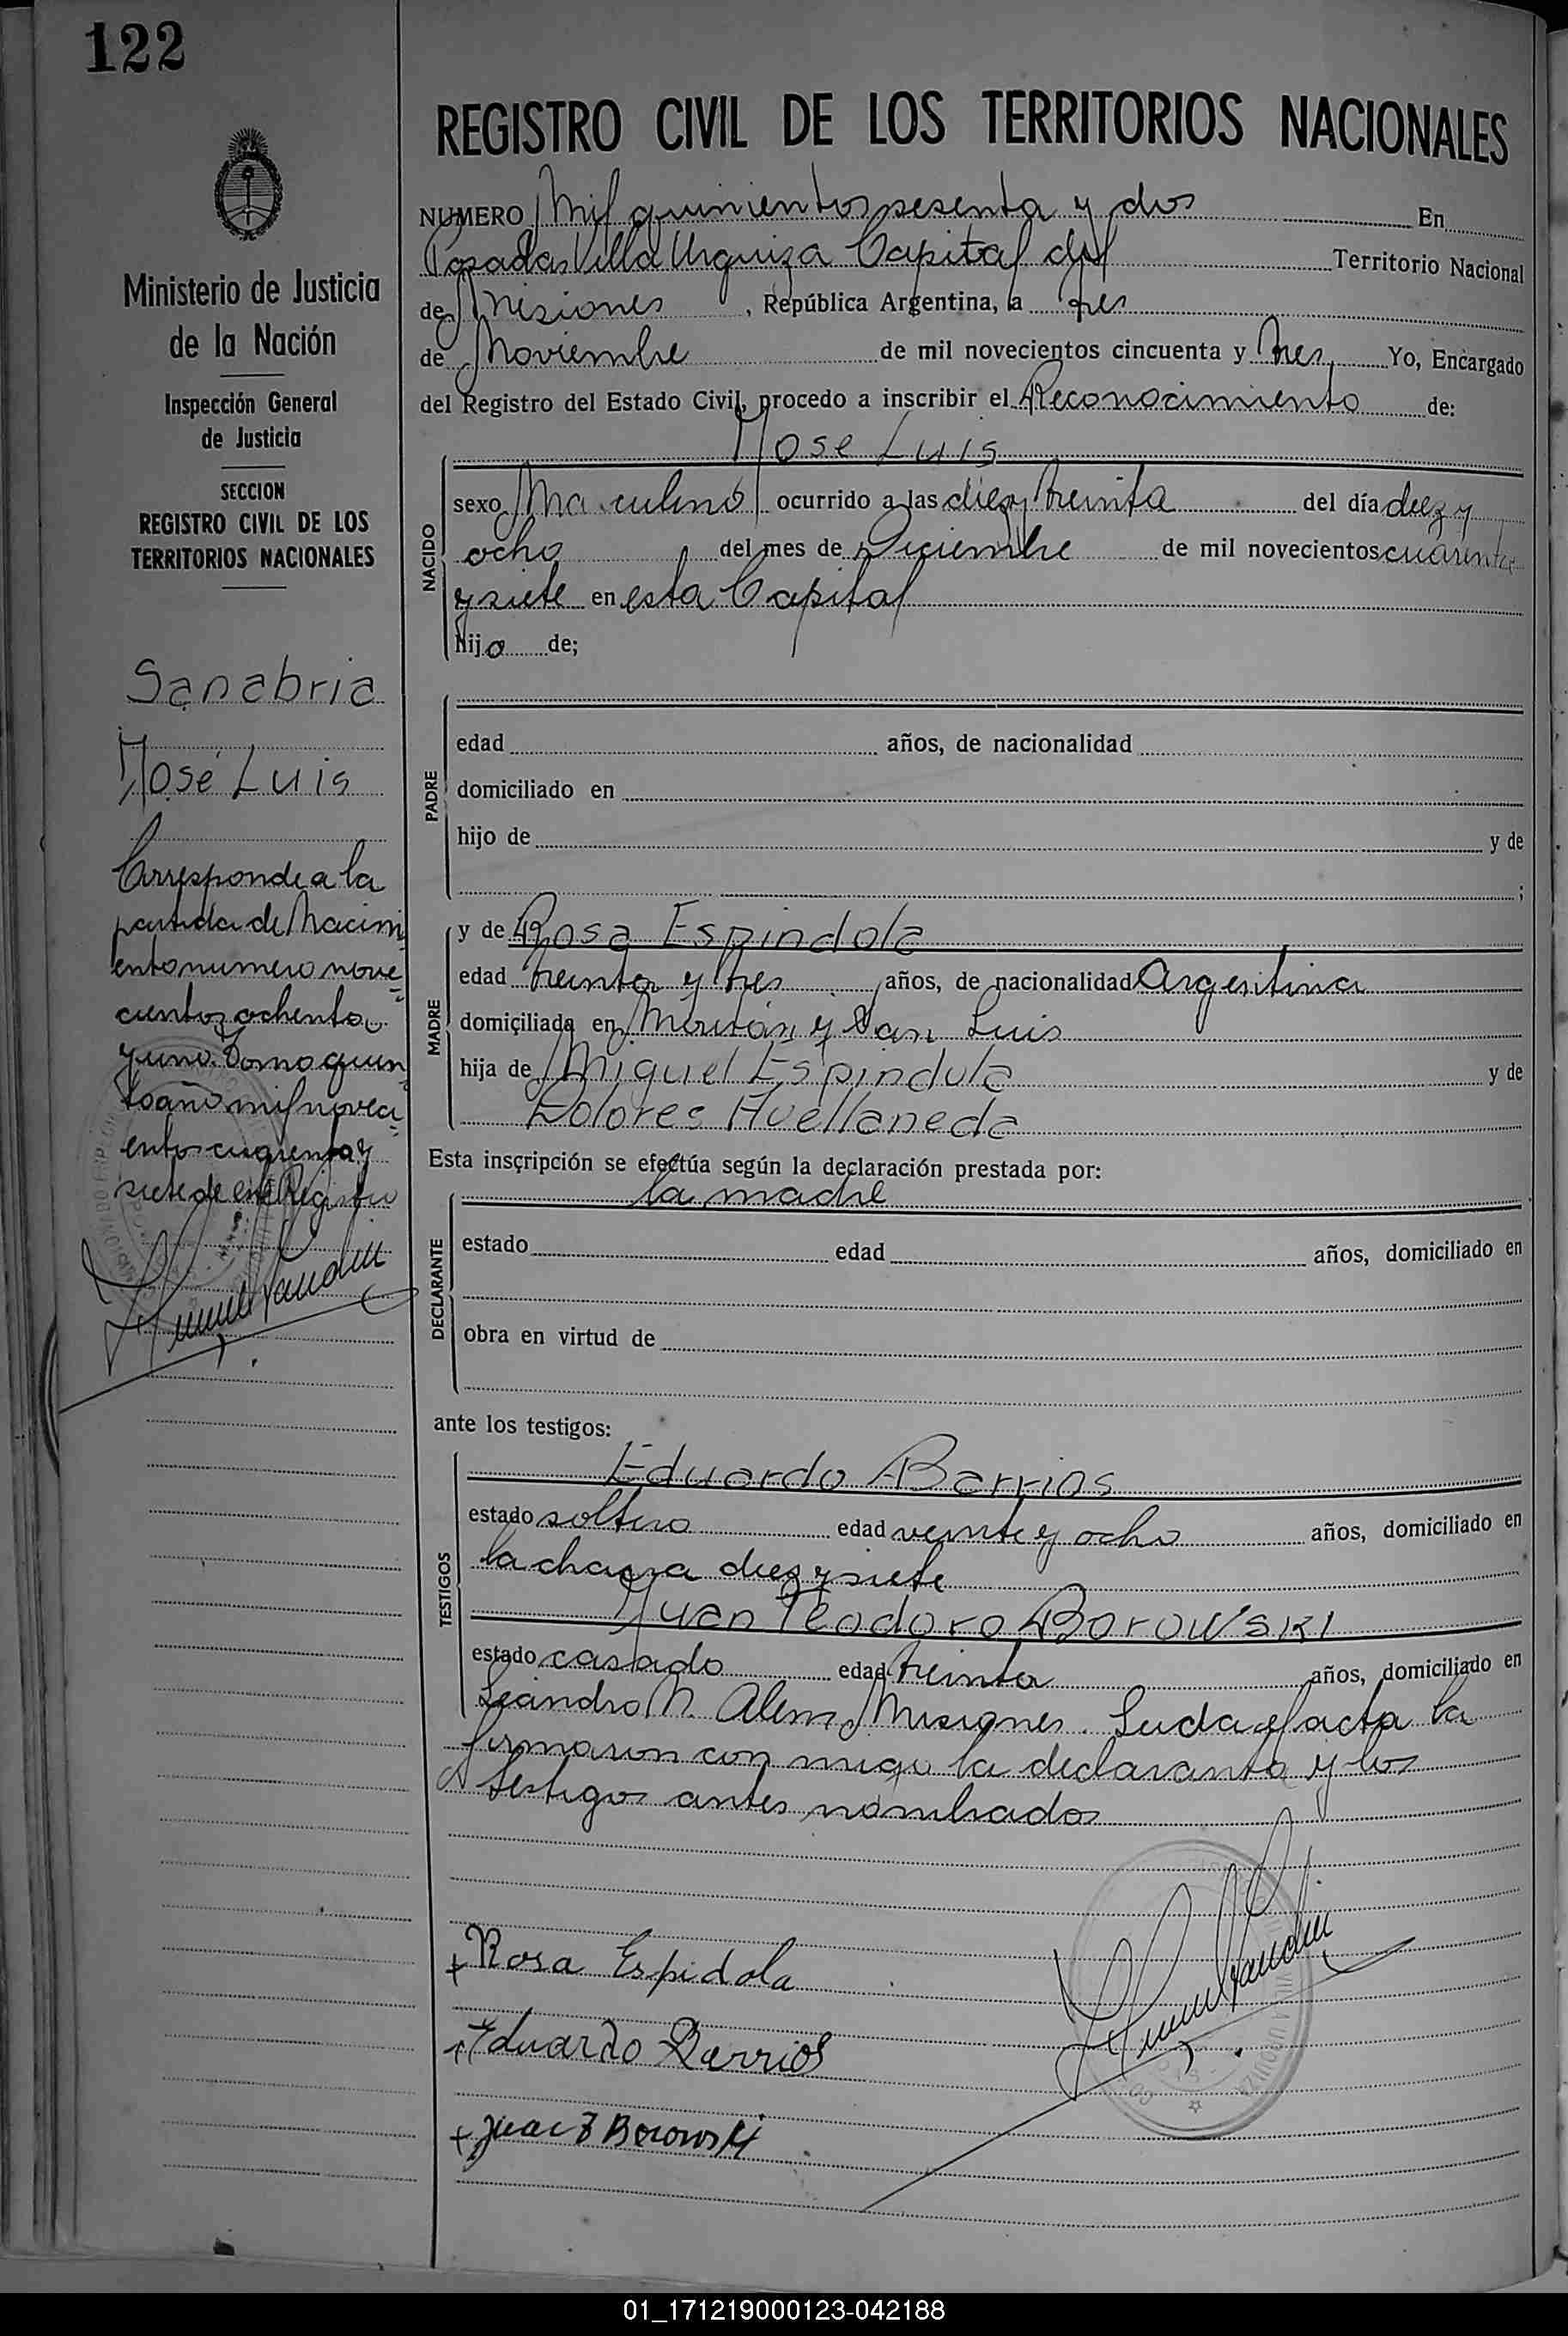 122
REGISTRO CIVIL DE LOS TERRITORIOS NACIONALES
NUMERO Mil quinientos sesenta y dos En
Posadas Villa Urquiza Capital del Territorio Nacional
de Misiones, República Argentina, a tres
de Noviembre de mil novecientos cincuenta y tres Yo, Encargado
del Registro del Estado Civil, procedo a inscribir el Reconocimiento de:
Jose Luis
NACIDO
sexo Masculino ocurrido a las diez y treinta del día diez y
ocho del mes de Diciembre de mil novecientos cuarenta
y siete en esta Capital
hijo de;
PADRE
edad años, de nacionalidad
domiciliado en
hijo de y de
;
MADRE
y de Rosa Espindola
edad treinta y tres años, de nacionalidad Argentina
domiciliada en Mitre y San Luis
hija de Miguel Espindola y de
Dolores Avellaneda
Esta inscripción se efectúa según la declaración prestada por:
la madre
DECLARANTE
estado edad años, domiciliado en
obra en virtud de
ante los testigos:
TESTIGOS
Eduardo Barrios
estado soltero edad veinte y ocho años, domiciliado en
la chacra diez y siete
Juan Teodoro Borowski
estado casado edad treinta años, domiciliado en
Leandro N. Alem, Misiones. Leida el acta la
firmaron con migo la declarante y los
testigos antes nombrados
+ Rosa Espidola
+ Eduardo Barrios
+ Juan T Borowski
Ministerio de Justicia
de la Nación
Inspección General
de Justicia
SECCION
REGISTRO CIVIL DE LOS
TERRITORIOS NACIONALES
Sanabria
José Luis
Corresponde a la
partida de Nacimi
ento numero nove
cientos ochenta
y uno. Tomo quin
to año mil noveci
entos cuarenta y
siete de este Registro
01_171219000123-042188